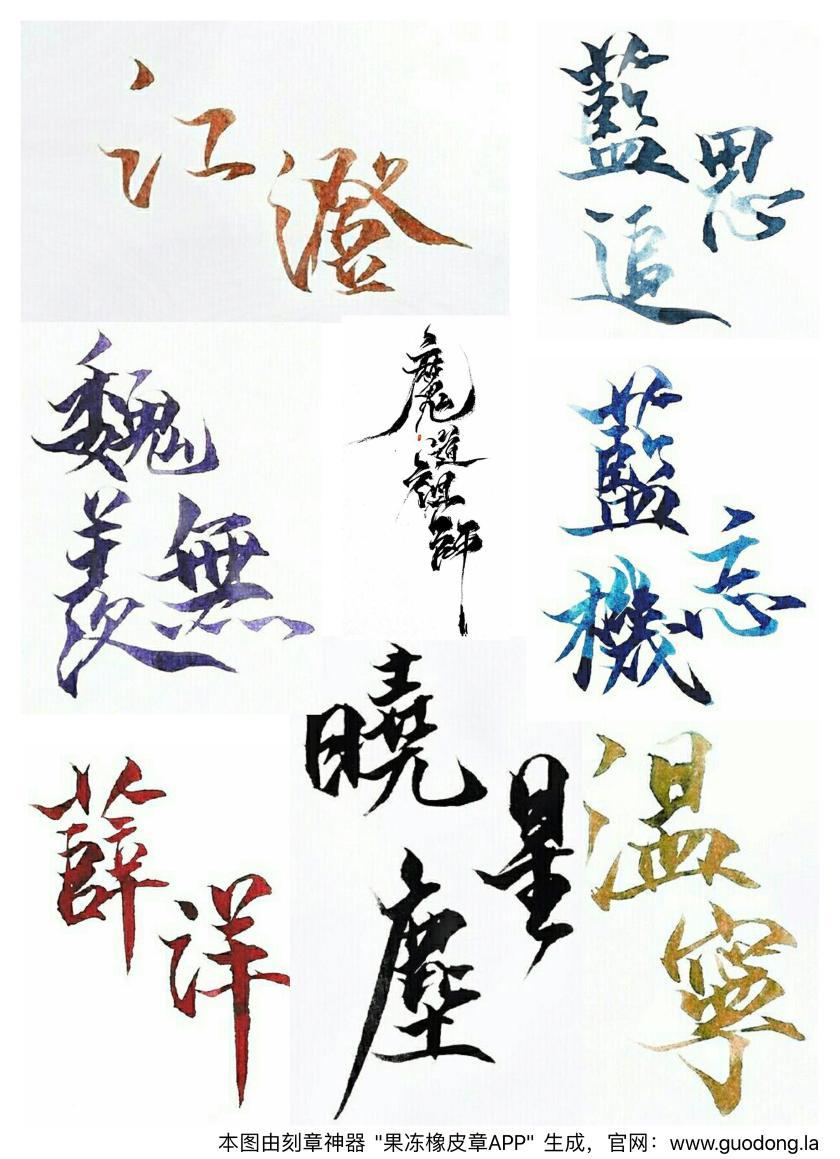 江澄
藍思追
魏無羨
魔道祖師
藍忘機
薛洋
曉星塵
温寧
本图由刻章神器 "果冻橡皮章APP" 生成，官网：www.guodong.la